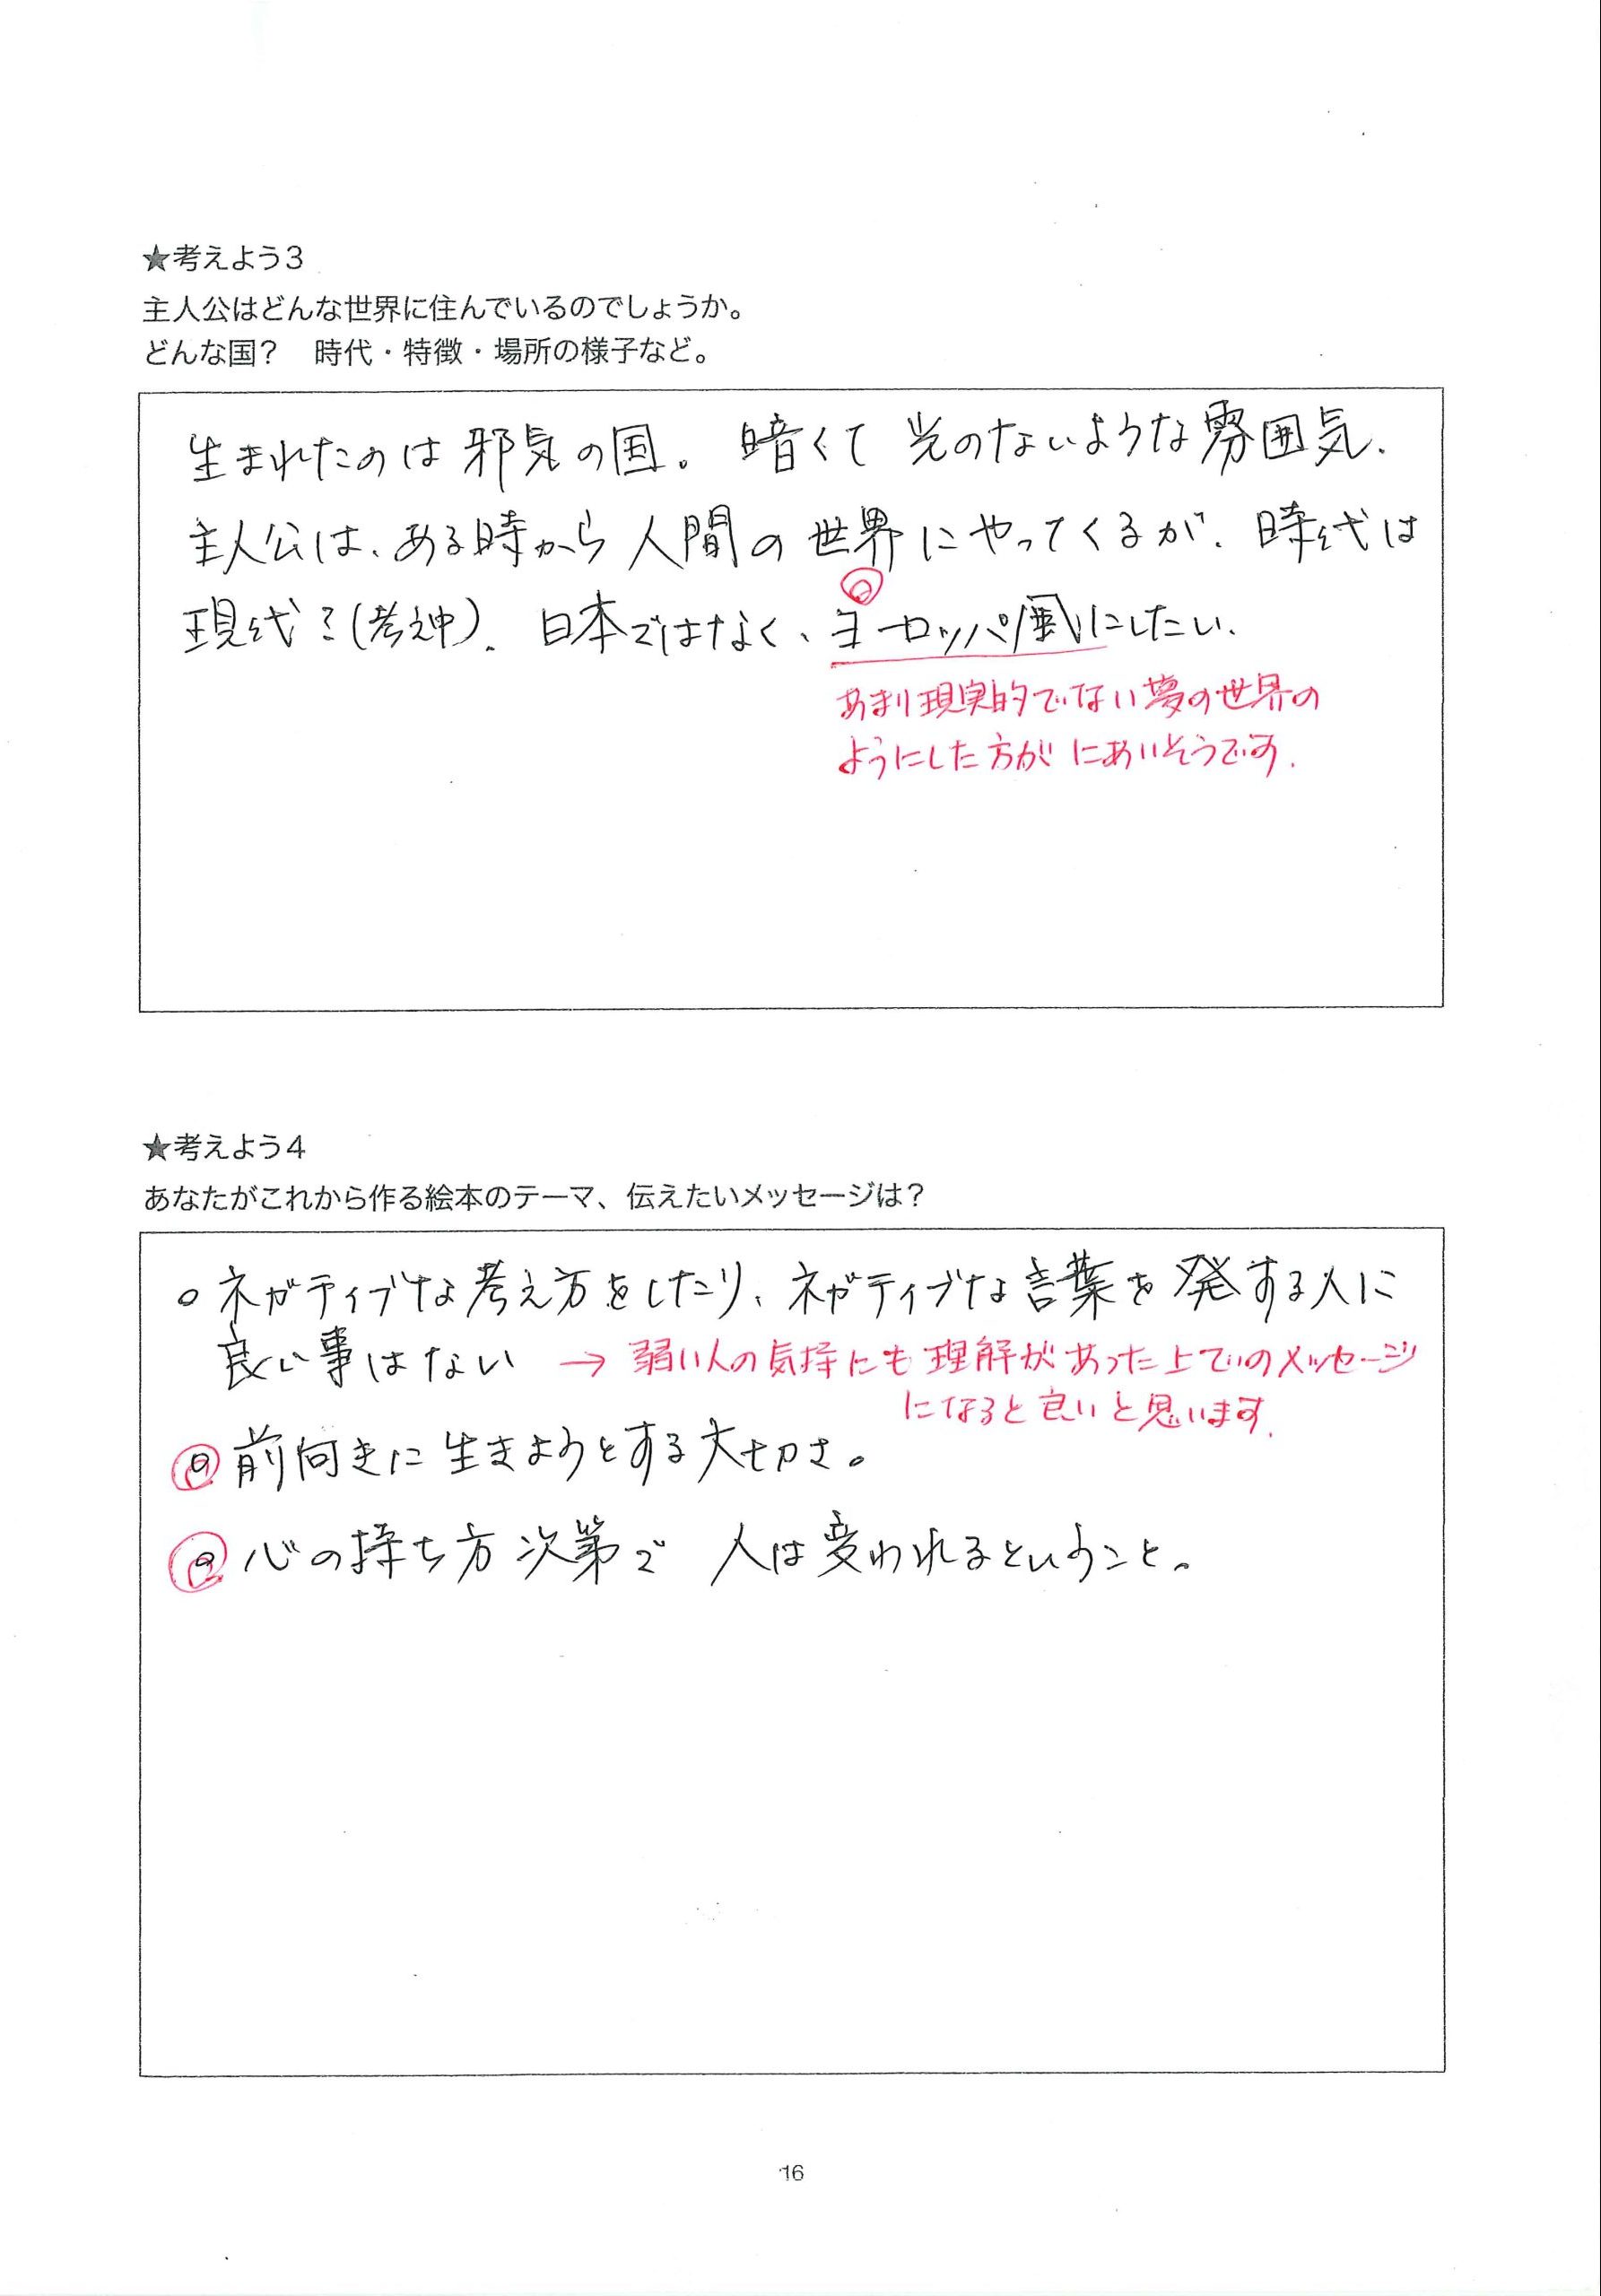 ★考えよう3
主人公はどんな世界に住んでいるのでしょうか。
どんな国?　時代・特徴・場所の様子など。
生まれたのは邪気の国。暗くて光のないような雰囲気.
主人公は、ある時から人間の世界にやってくるが、時代は
現代?(考え中)。日本ではなく、ヨーロッパ風にしたい.
あまり現実的でない夢の世界の
ようにした方がにあいそうです.
★考えよう4
あなたがこれから作る絵本のテーマ、伝えたいメッセージは?
○ネガティブな考え方をしたり、ネガティブな言葉を発する人に
良い事はない → 弱い人の気持にも理解があった上でのメッセージ
になると良いと思います.
○前向きに生きようとする大切さ。
○心の持ち方次第で 人は変われるということ。
16